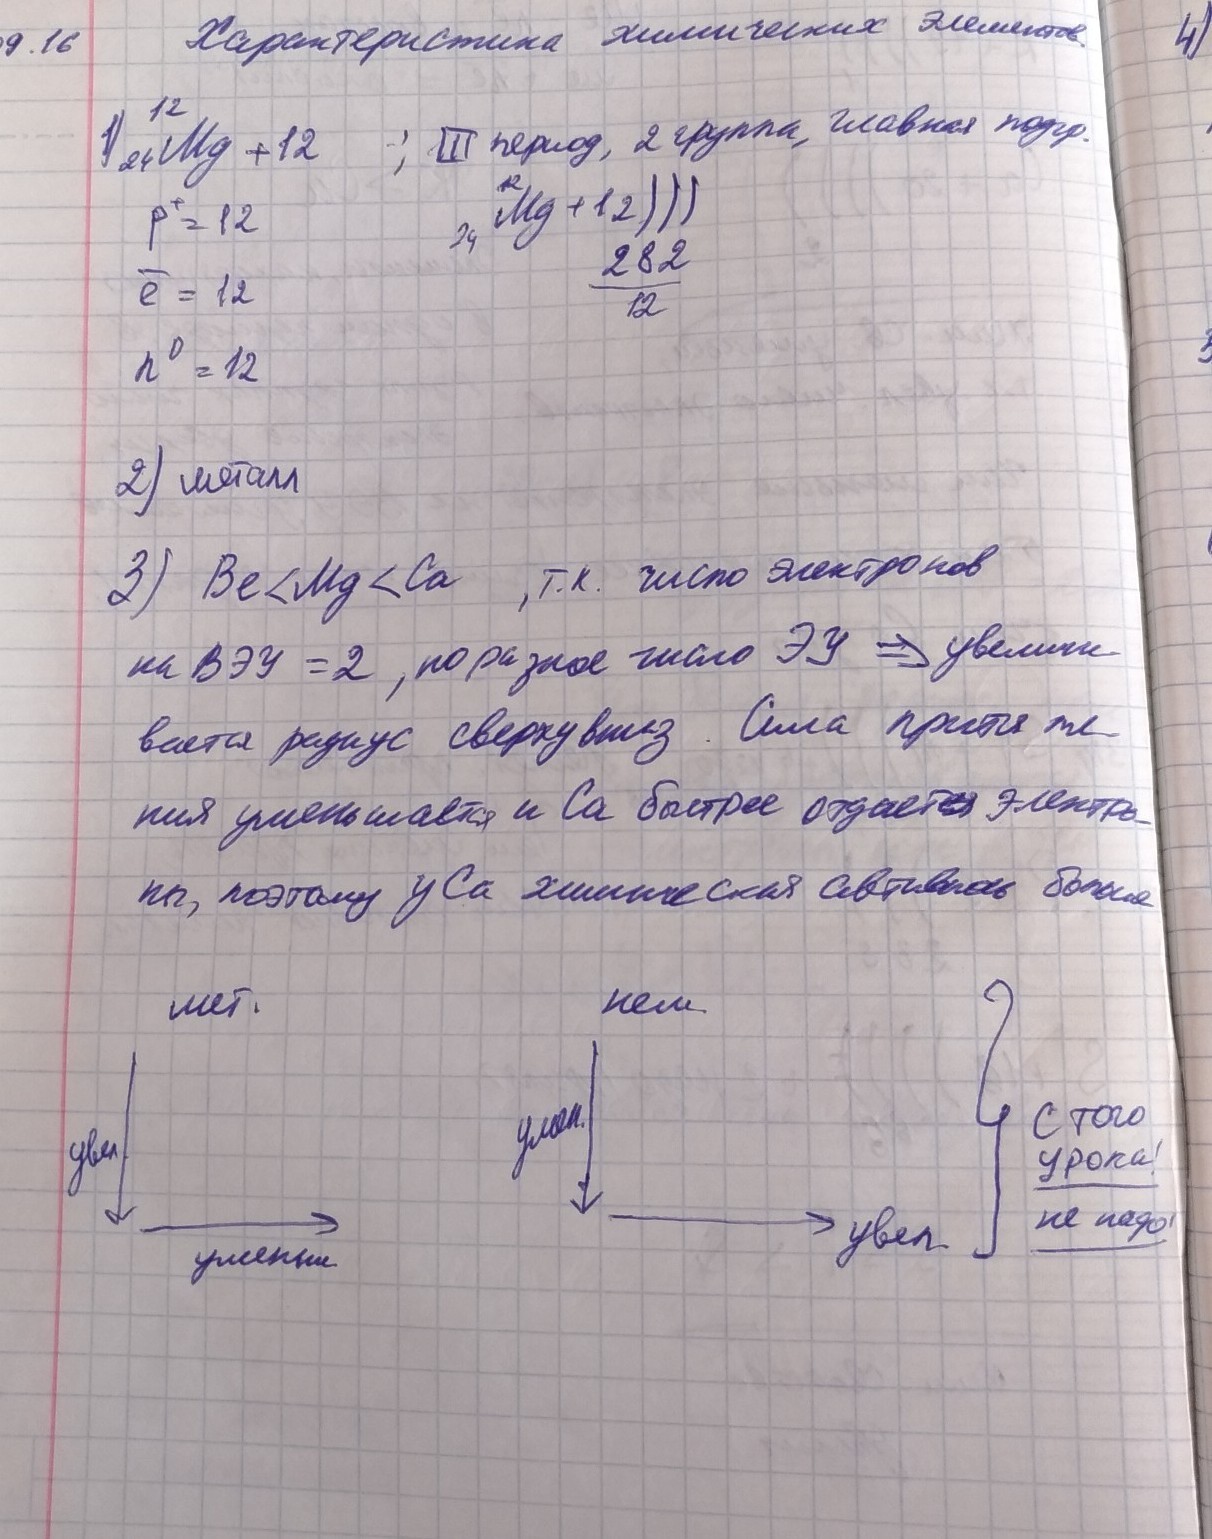 09.16 Характеристика химических элементов.
4)
12
1) 24 Mg +12 ; III период, 2 группа, главная подгр.
p⁺ = 12
12
24 Mg +12 ) ) )
2 8 2
12
e̅ = 12
n⁰ = 12
2) металл
3) Be < Mg < Ca , т.к. число электронов
на ВЭУ = 2, но разное число ЭУ ⇒ увеличи-
вается радиус сверху вниз. Сила притяже-
ния уменьшается и Ca быстрее отдает электро-
ны, поэтому у Ca химическая активность больше
мет. нем.
увел.
умен.
уменьш.
увел.
С того
урока!
не надо!